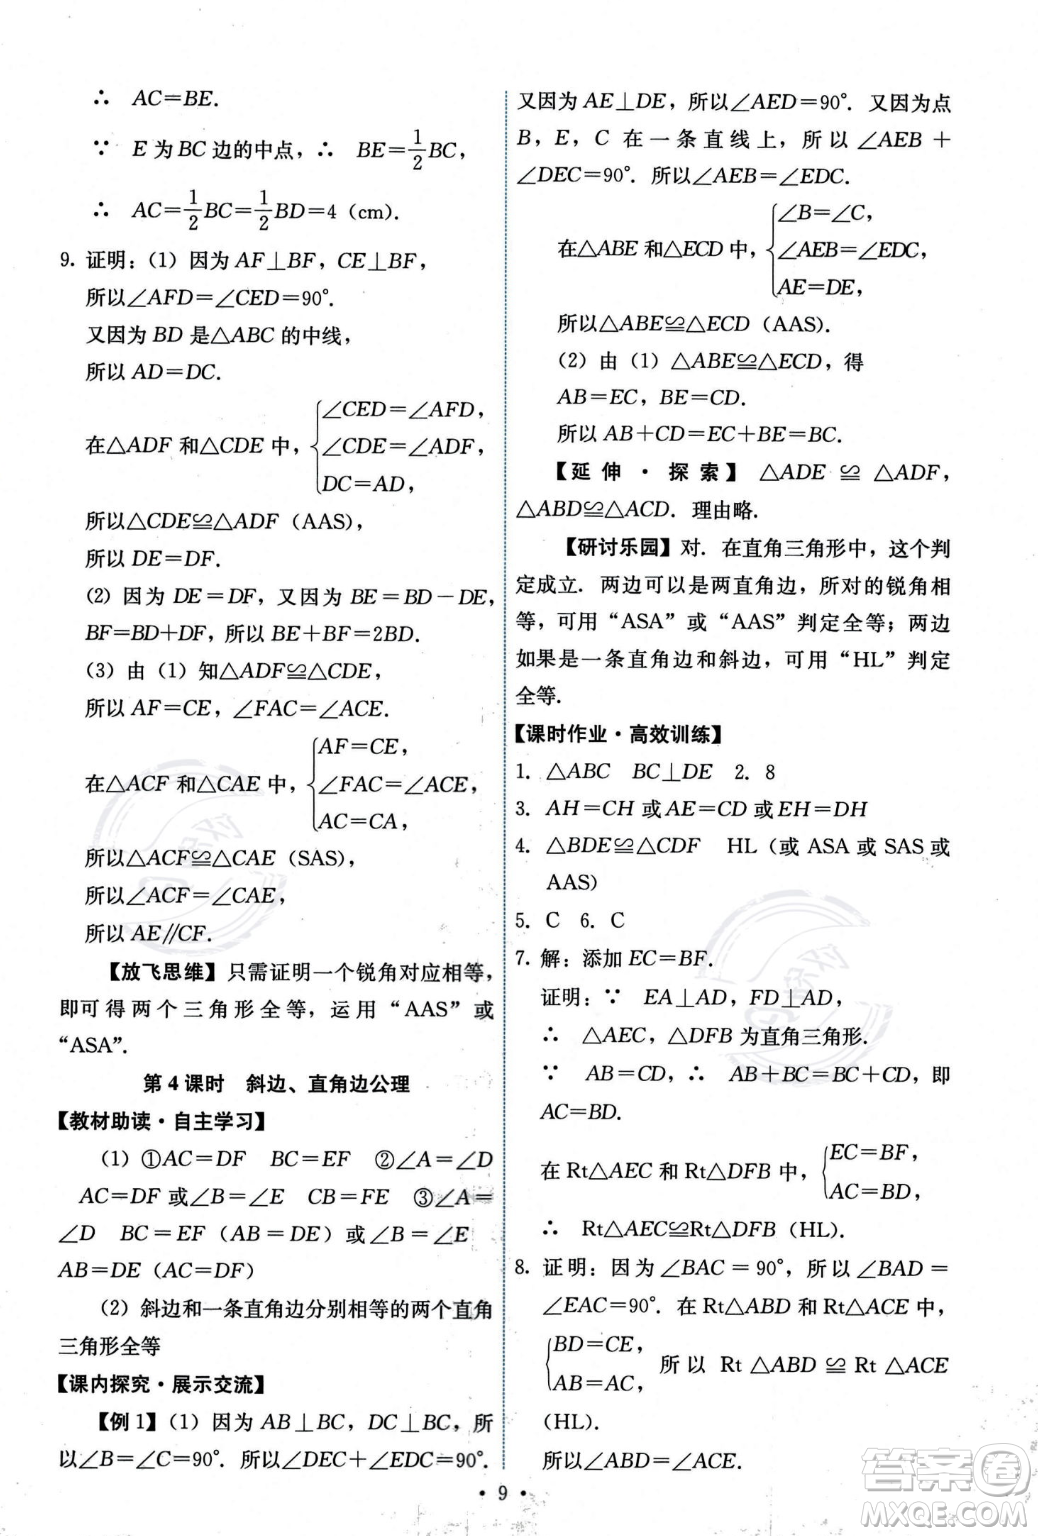 ∴ AC=BE.
∵ E为BC边的中点，∴ BE=1/2BC，
∴ AC=1/2BC=1/2BD=4（cm）.
9. 证明：（1）因为AF⊥BF，CE⊥BF，
所以∠AFD=∠CED=90°.
又因为BD是△ABC的中线，
所以AD=DC.
在△ADF和△CDE中，{∠CED=∠AFD，
∠CDE=∠ADF，
DC=AD，
所以△CDE≌△ADF（AAS），
所以DE=DF.
（2）因为DE=DF，又因为BE=BD-DE，
BF=BD+DF，所以BE+BF=2BD.
（3）由（1）知△ADF≌△CDE，
所以AF=CE，∠FAC=∠ACE.
在△ACF和△CAE中，{AF=CE，
∠FAC=∠ACE，
AC=CA，
所以△ACF≌△CAE（SAS），
所以∠ACF=∠CAE，
所以AE∥CF.
【放飞思维】只需证明一个锐角对应相等，
即可得两个三角形全等，运用“AAS”或
“ASA”.
第4课时 斜边、直角边公理
【教材助读·自主学习】
（1）①AC=DF BC=EF ②∠A=∠D
AC=DF或∠B=∠E CB=FE ③∠A=
∠D BC=EF（AB=DE）或∠B=∠E
AB=DE（AC=DF）
（2）斜边和一条直角边分别相等的两个直角
三角形全等
【课内探究·展示交流】
【例1】（1）因为AB⊥BC，DC⊥BC，所
以∠B=∠C=90°.所以∠DEC+∠EDC=90°.
又因为AE⊥DE，所以∠AED=90°.又因为点
B，E，C在一条直线上，所以∠AEB+
∠DEC=90°.所以∠AEB=∠EDC.
在△ABE和△ECD中，{∠B=∠C，
∠AEB=∠EDC，
AE=DE，
所以△ABE≌△ECD（AAS）.
（2）由（1）△ABE≌△ECD，得
AB=EC，BE=CD.
所以AB+CD=EC+BE=BC.
【延伸·探索】△ADE≌△ADF，
△ABD≌△ACD.理由略.
【研讨乐园】对.在直角三角形中，这个判
定成立.两边可以是两直角边，所对的锐角相
等，可用“ASA”或“AAS”判定全等；两边
如果是一条直角边和斜边，可用“HL”判定
全等.
【课时作业·高效训练】
1. △ABC BC⊥DE 2. 8
3. AH=CH或AE=CD或EH=DH
4. △BDE≌△CDF HL（或ASA或SAS或
AAS）
5. C 6. C
7. 解：添加EC=BF.
证明：∵ EA⊥AD，FD⊥AD，
∴ △AEC，△DFB为直角三角形.
∵ AB=CD，∴ AB+BC=BC+CD，即
AC=BD.
在Rt△AEC和Rt△DFB中，{EC=BF，
AC=BD，
∴ Rt△AEC≌Rt△DFB（HL）.
8. 证明：因为∠BAC=90°，所以∠BAD=
∠EAC=90°.在Rt△ABD和Rt△ACE中，
{BD=CE，
AB=AC，所以Rt△ABD≌Rt△ACE
（HL）.
所以∠ABD=∠ACE.
· 9 ·
答案圈
MXQE.COM